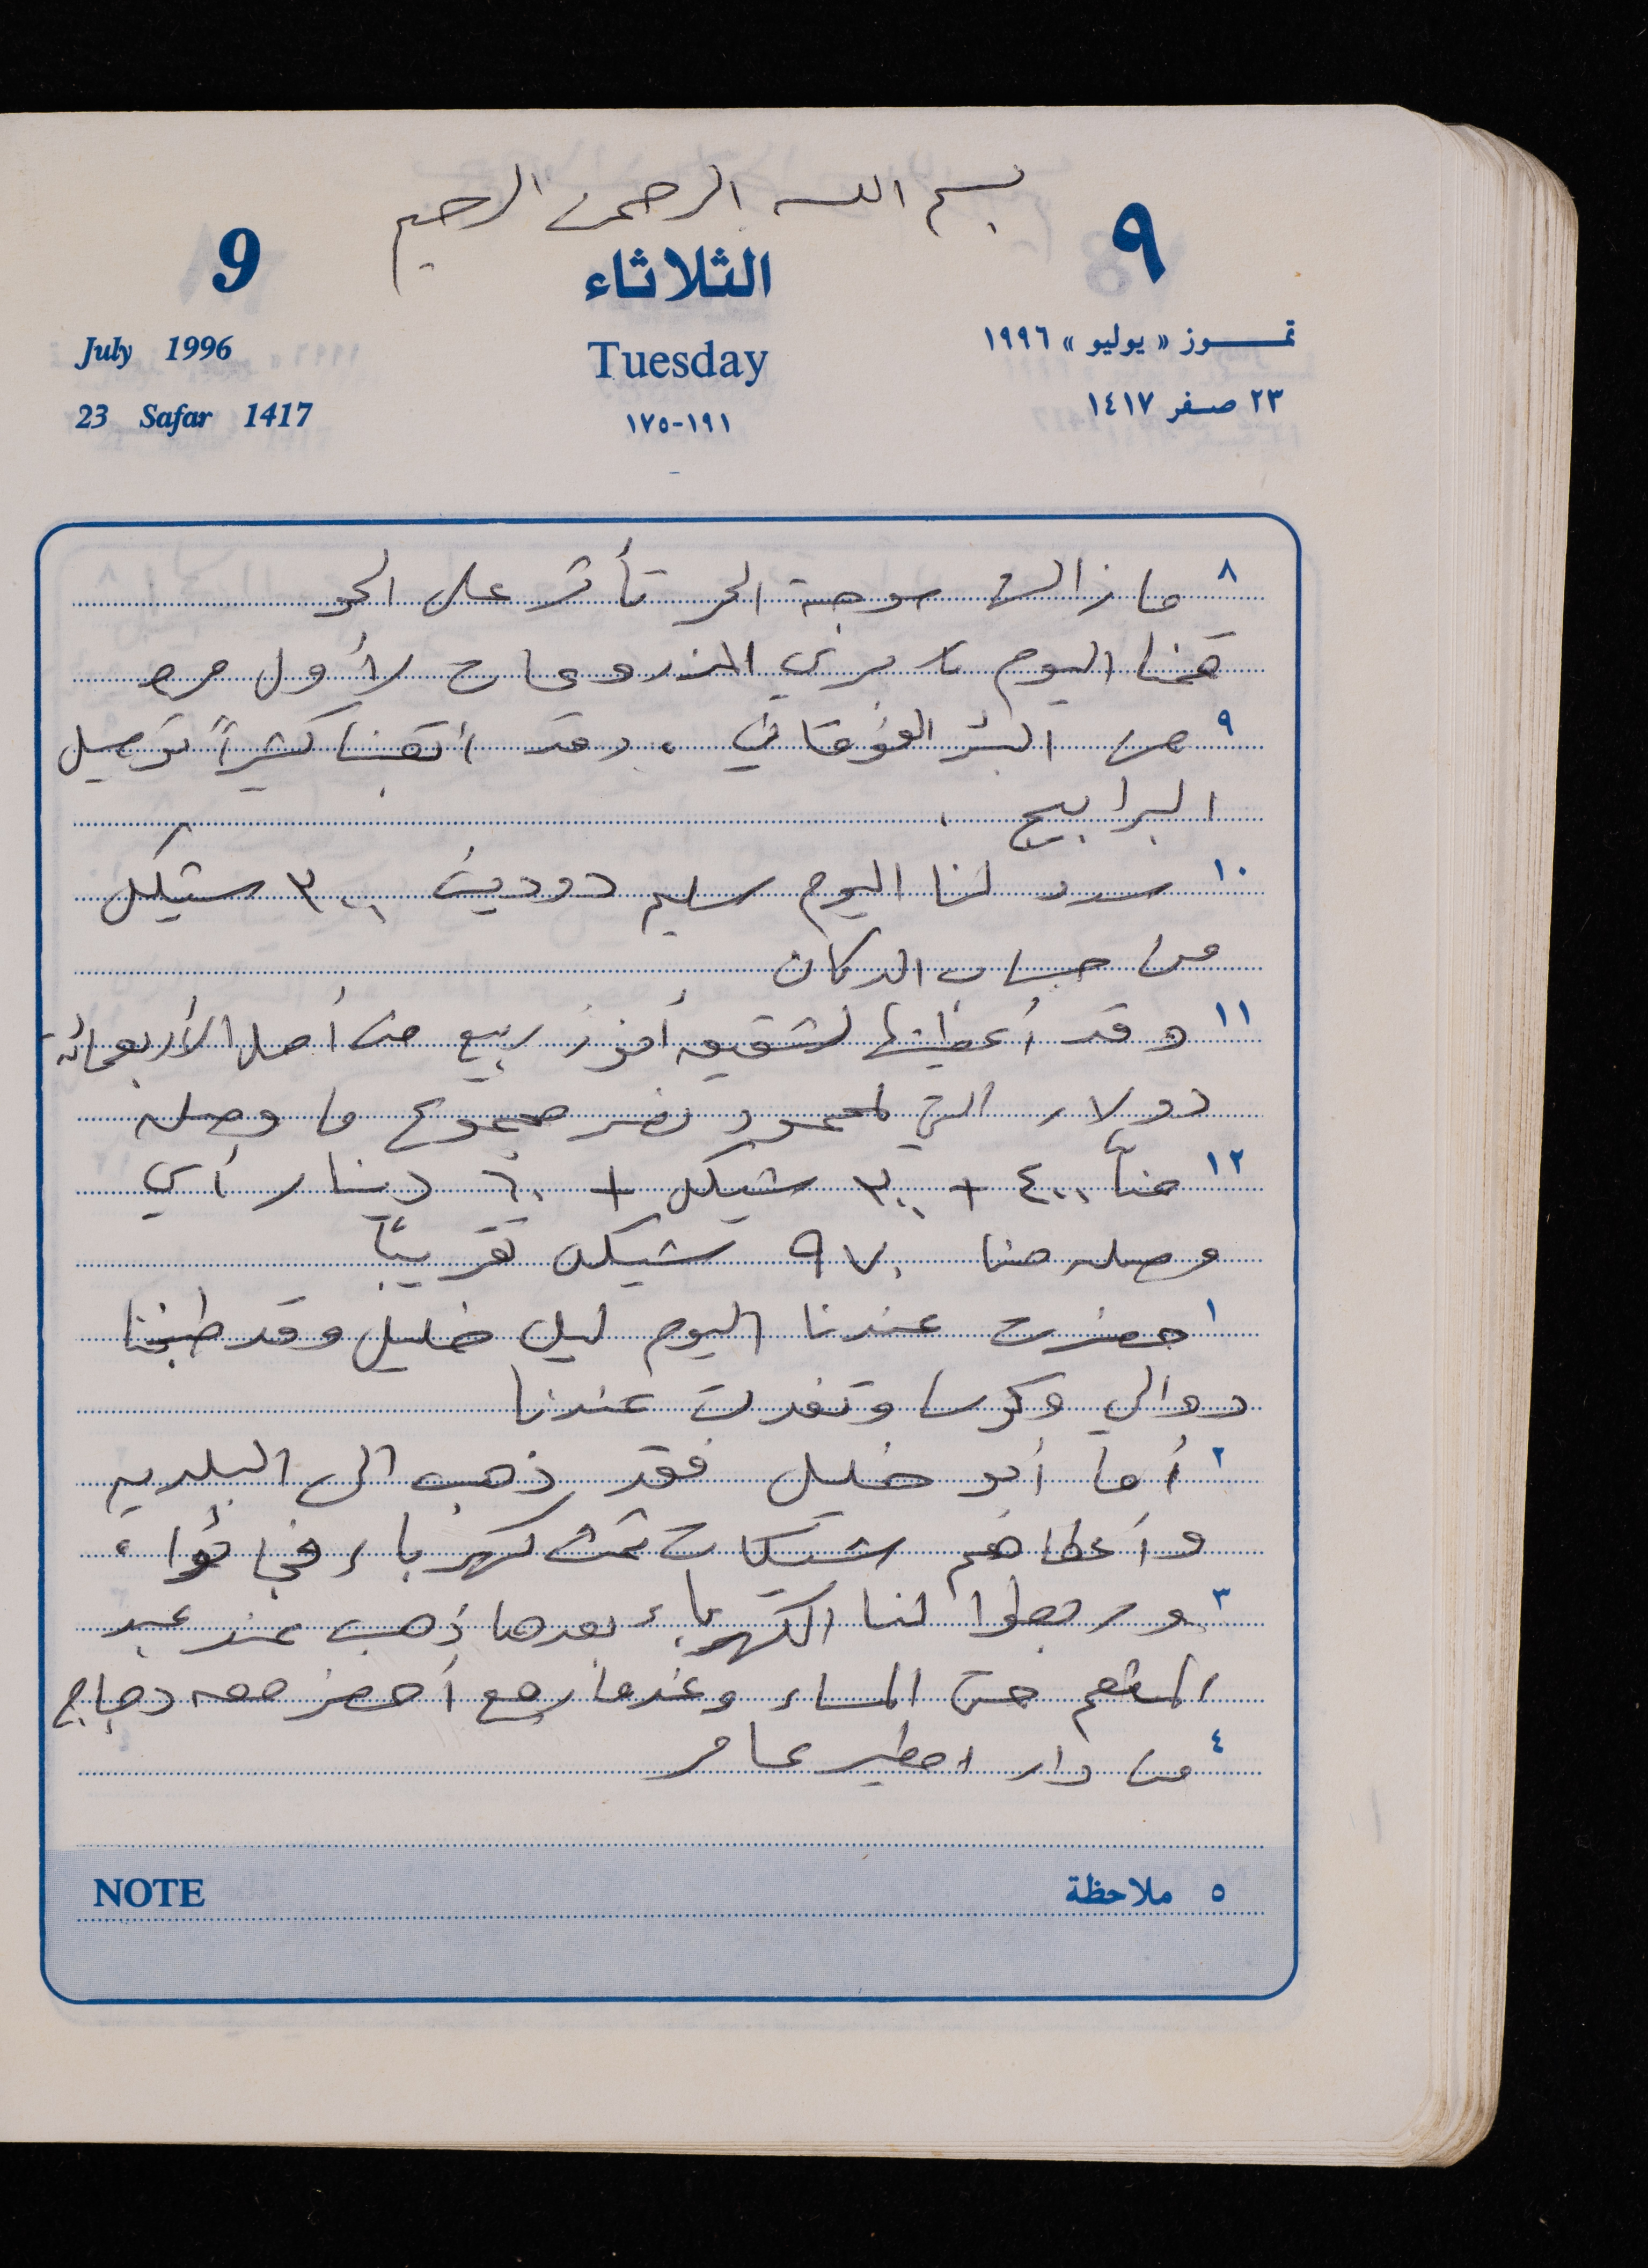 بسم الله الرحمن الرحيم
9 الثلاثاء ٩
July 1996 Tuesday تمـوز « يوليو » ١٩٩٦
23 Safar 1417 ١٩١-١٧٥ ٢٣ صفر ١٤١٧
٨ ما زالت موجة الحر تأثر على الجو
قمنا اليوم بري المزروعات لأول مره
٩ من البئر الفوقاني ، وقد اتقنا كثيراً توصيل
البرابيج .
١٠ سدد لنا اليوم سليم دودين ٣٠٠ شيكل
من حساب الدكان
١١ وقد أعطيتها لشقيقه أفوز ربيع من أصل الأربعمائة
دولار التي لمحمود نصر مجموع ما وصله
١٢ منا ٤٠٠ + ٣٠٠ شيكل + ٦٠ دينار أي
وصله منا ٩٧٠ شيكل تقريباً
١ حضرت عندنا اليوم ليلى خليل وقد طبخنا
دوالي وكوسا وتغدت عندنا
٢ أما أبو خليل فقد ذهب الى البلدية
وأعطاهم شيكات ثمن كهرباء
٣ وربطوا لنا الكهرباء بعدها ذهب عند عبد
المنعم حتى المساء وعندما رجع أحضر معه دجاج
٤ من دار امطير عامر
NOTE ٥ ملاحظة